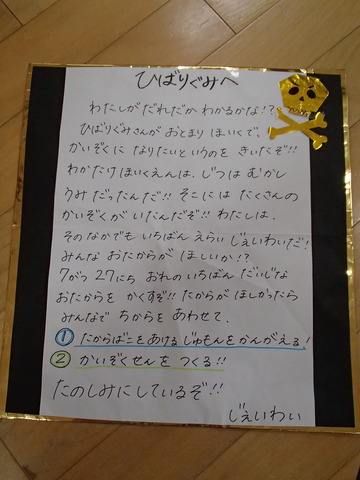 ひばりぐみへ
わたしがだれだか わかるかな!?
ひばりぐみさんが おとまり ほいくで、
かいぞくに なりたいというのを きいたぞ!!
わかたけほいくえんは、じつは むかし
うみ だったんだ!! そこには たくさんの
かいぞくが いたんだぞ!! わたしは、
そのなかでも いちばん えらい じぇいわいだ!
みんな おたからが ほしいか!?
7がつ 27にち おれの いちばん だいじな
おたからを かくすぞ!! たからが ほしかったら
みんなで ちからを あわせて、
① たからばこをあける じゅもんを かんがえる!
② かいぞくせんを つくる!!
たのしみにしているぞ!!
じぇいわい